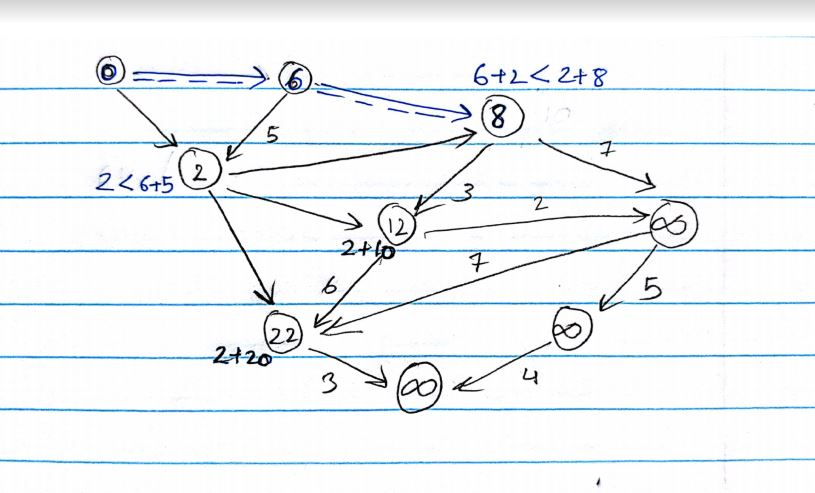 0
6
6+2<2+8
8
5
7
2
2<6+5
3
2
12
∞
2+10
7
6
5
22
∞
2+20
3
∞
4